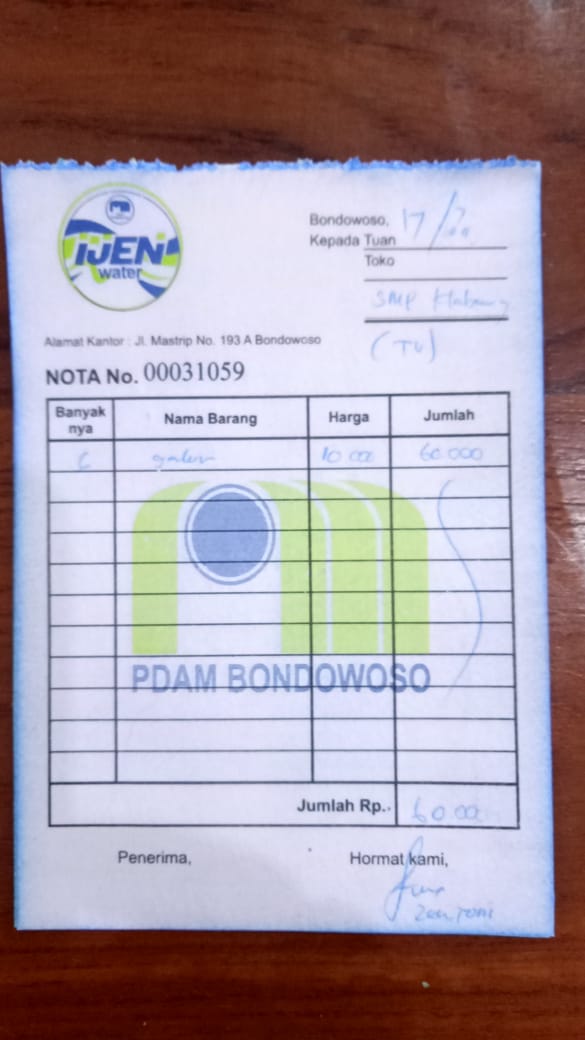 iJEN
water
Bondowoso, 17/
Kepada Tuan
Toko
SMP
(TU)
Alamat Kantor : Jl. Mastrip No. 193 A Bondowoso
NOTA No. 00031059
Banyak nya Nama Barang Harga Jumlah
6 galon 10.000 60.000
PDAM BONDOWOSO
Jumlah Rp.. 60.000
Penerima, Hormat kami,